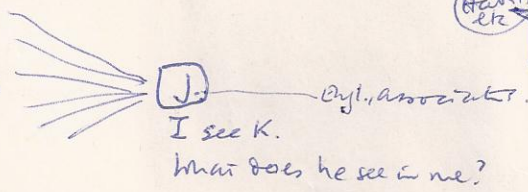 etc
J.
Engl., associates.
I see K.
What does he see in me?